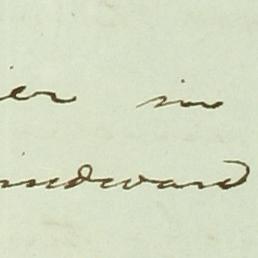 ier in
indward